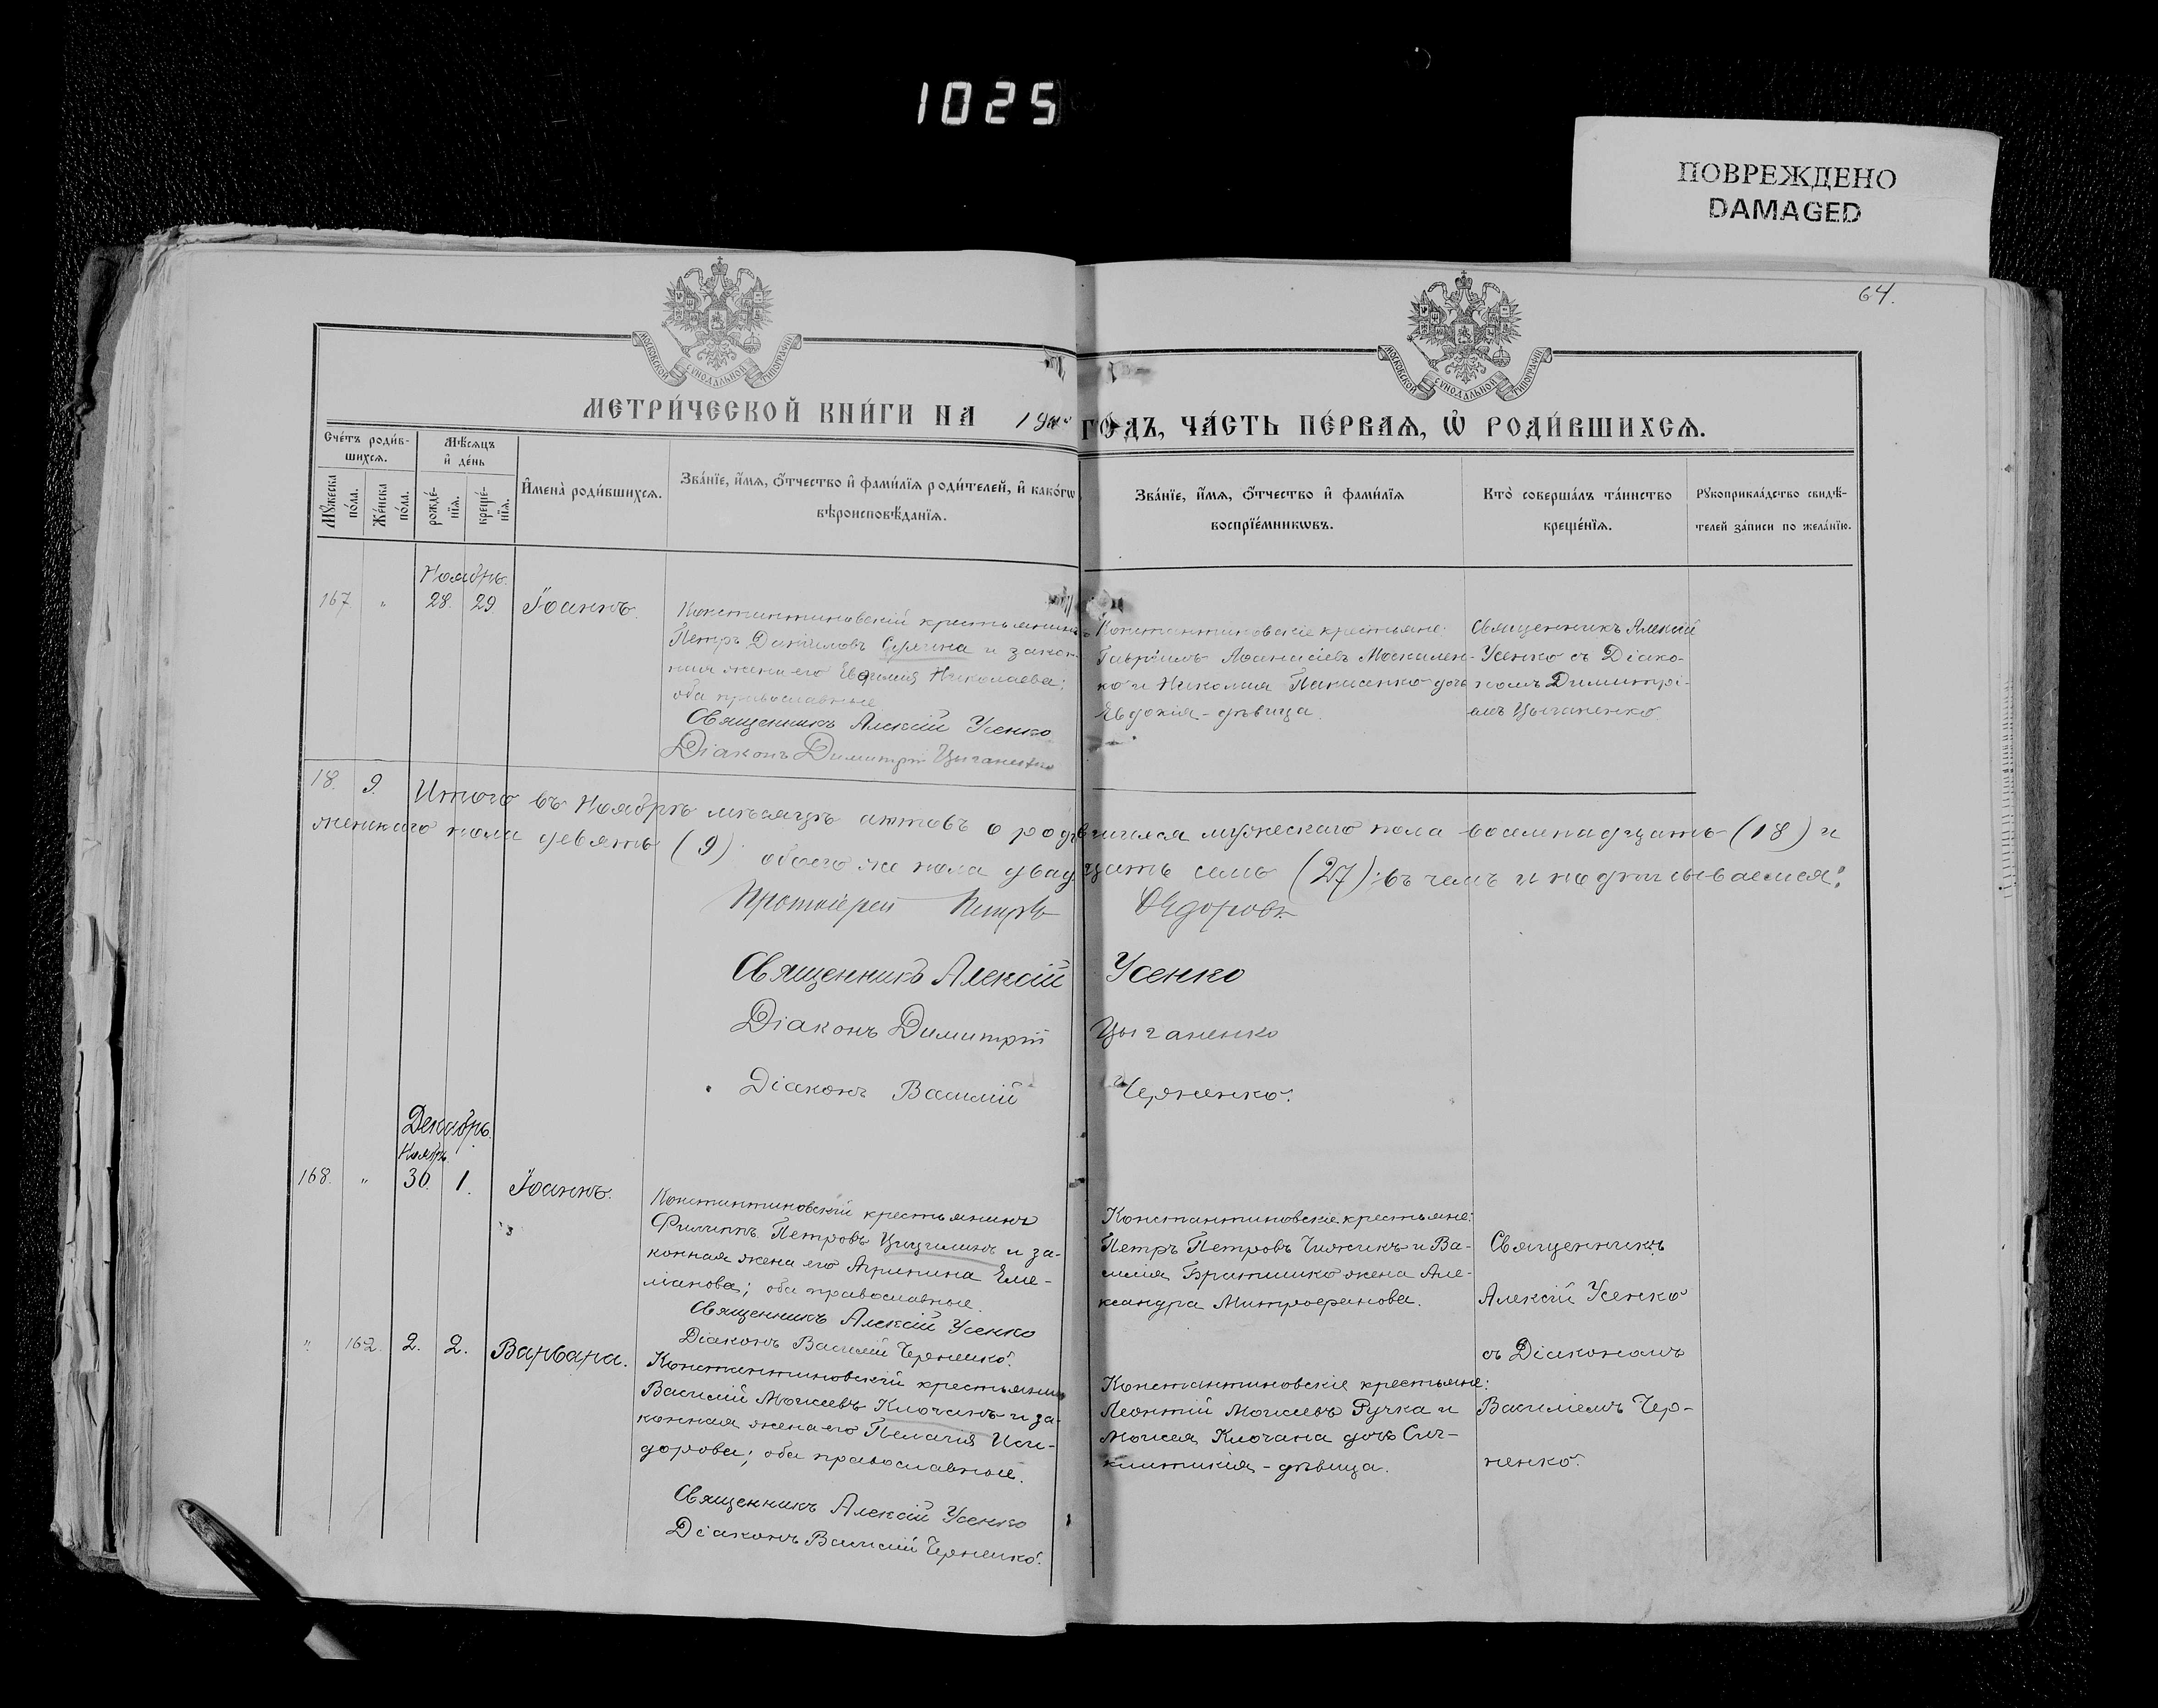 1025
ПОВРЕЖДЕНО
DAMAGED
64.
МОСКОВСКОЙ СѴНОДАЛЬНОЙ ТИПОГРАФІИ
МОСКОВСКОЙ СѴНОДАЛЬНОЙ ТИПОГРАФІИ
МЕТРИ́ЧЕСКОЙ КНИ́ГИ НА 19 ГО́ДЪ, ЧА́СТЬ ПЕ́РВАѦ, Ѡ҆ РОДИ́ВШИХСѦ.
Сче́тъ роди́вшихсѧ.
Мꙋ́жеска по́ла.
Же́нска по́ла.
Мѣ́сѧцъ и҆ де́нь
рожде́нїѧ.
креще́нїѧ.
И҆мена̀ роди́вшихсѧ.
Зва́нїе, и҆́мѧ, ѻ҆́тчество и҆ фами́лїѧ роди́телей, и҆ како́гѡ
вѣроисповѣ́данїѧ.
Зва́нїе, и҆́мѧ, ѻ҆́тчество и҆ фами́лїѧ
воспрїе́мникѡвъ.
Кто̀ соверша́лъ та́инство
креще́нїѧ.
Рꙋкоприкла́дство свидѣ́-
телей за́писи по жела́нїю.
Ноябрь.
167 " 28. 29 Іоаннъ.
Константиновскій крестьянинъ
Петръ Даніиловъ Сулима и закон-
ная жена его Евфимія Николаева;
оба православные
Священникъ Алексій Усенко
Діаконъ Димитрій Цыганенко
Константиновскіе крестьяне:
Гавріилъ Аѳанасіевъ Москален-
ко и Николая Панасенко дочь
Евдокія - дѣвица.
Священникъ Алексій
Усенко съ Діако-
номъ Димитрі-
емъ Цыганенко
18. 9. Итого въ Ноябрѣ мѣсяцѣ актовъ о родившихся мужескаго пола восемнадцать (18) и
женскаго пола девять (9) обоего же пола двадцать семь (27); въ чемъ и подписываемся:
Протоіерей Петръ Ѳедоровъ
Священникъ Алексій Усенко
Діаконъ Димитрій Цыганенко
Діаконъ Василій Черненко.
Декабрь.
Ноябрь.
168. " 30. 1. Іоаннъ.
Константиновскій крестьянинъ
Филиппъ Петровъ и за-
конная жена его Агрипина Еме-
ліанова; оба православные.
Священникъ Алексій Усенко
Діаконъ Василій Черненко.
Константиновскіе крестьяне:
Петръ Петровъ Чижикъ и Ва-
силія Братишко жена Але-
ксандра Митрофанова.
Священникъ
Алексій Усенко
съ Діакономъ
Василіемъ Чер-
ненко.
" 162. 2. 2. Варвара.
Константиновскій крестьянинъ
Василій Моисеевъ Клочанъ и за-
конная жена его Пелагія Иси-
дорова; оба православные.
Священникъ Алексій Усенко
Діаконъ Василій Черненко.
Константиновскіе крестьяне:
Леонтій Моисеевъ Ручка и
Моисея Клочана дочь Син-
клитикія - дѣвица.